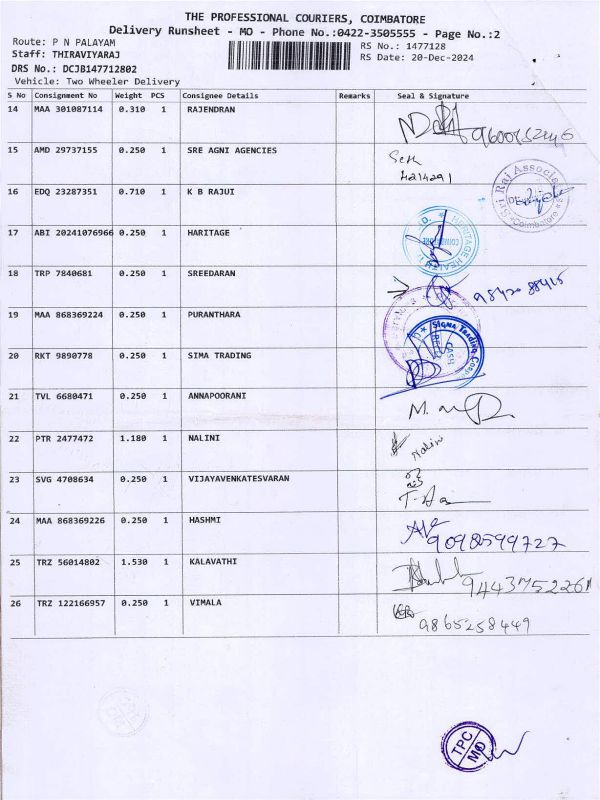 THE PROFESSIONAL COURIERS, COIMBATORE
Delivery Runsheet - MO - Phone No.:0422-3505555 - Page No.:2
Route: P N PALAYAM
RS No.: 1477128
Staff: THIRAVIYARAJ
RS Date: 20-Dec-2024
DRS No.: DCJB147712802
Vehicle: Two Wheeler Delivery
S No Consignment No Weight PCS Consignee Details Remarks Seal & Signature
14 MAA 301087114 0.310 1 RAJENDRAN
15 AMD 29737155 0.250 1 SRE AGNI AGENCIES
4214291
16 EDQ 23287351 0.710 1 K B RAJUI
Sri Raj Associa
Coimbatore
17 ABI 20241076966 0.250 1 HARITAGE
HERITAGE HEALTH
18 TRP 7840681 0.250 1 SREEDARAN
19 MAA 868369224 0.250 1 PURANTHARA
20 RKT 9890778 0.250 1 SIMA TRADING
Sigma Trading
CASH
21 TVL 6680471 0.250 1 ANNAPOORANI
22 PTR 2477472 1.180 1 NALINI
Nalini
23 SVG 4708634 0.250 1 VIJAYAVENKATESVARAN
24 MAA 868369226 0.250 1 HASHMI
9098599727
25 TRZ 56014802 1.530 1 KALAVATHI
26 TRZ 122166957 0.250 1 VIMALA
9865258449
TPC
MO